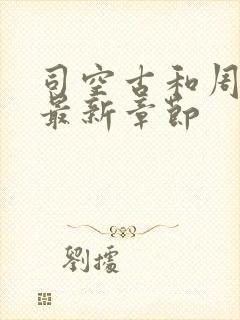 司空古和周
最新章节
劉擂